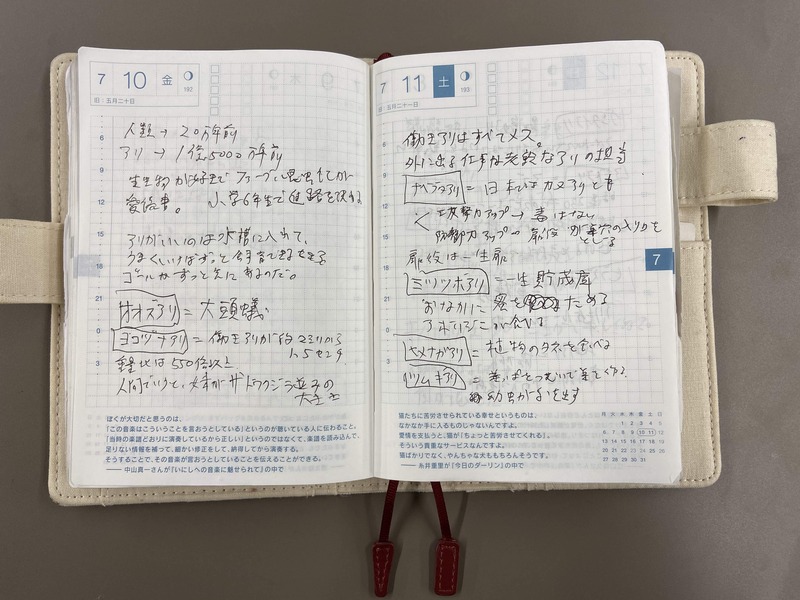 7 10 金
192
旧:五月二十日
人類→20万年前
アリ→1億5000万年前
生生物が好きでファーブル昆虫
愛倍書。 小学6年生で進路を決する
アリがいいのは水槽に入れて、
うまくいけばずっと飼育できる
ゴールがずっと先にあるのだ。
オオズアリ=大頭蟻
ヨコヅナアリ=働きアリが約2ミリから
1.5センチ
重さ比は550倍以上
人間でいうと、 がザトウクジラ並みの
大きさ
6
9
12
15
18
21
0
3
ぼくが大切だと思うのは、
「この音楽はこういうことを言おうとしている」というのが聴いている人に伝わること。
「当時の楽譜どおりに演奏しているから正しい」というのではなくて、楽譜を読み込んで、
足りない情報を補って、細かい修正をして、納得してから演奏する。
そうすることで、その音楽が言おうとしていることを伝えることができる。
——中山真一さんが『いにしへの音楽に魅せられて』の中で
7 11 土
193
旧:五月二十一日
働きアリはすべてメス。
外に出る仕事は老齢なアリの担当
ヒラズオオアリ=日本 アリ
攻撃力アップ→毒はない
防御力アップ→扉役が巣穴の入り口を
とじる
扉役は一生扉
ミツツボアリ=一生貯蔵庫
おなかに蜜をためる
アボリジニが食べる
クロナガアリ=植物のタネを食べる
ツムギアリ=葉っぱをつむいで巣をつくる
幼虫が糸を出す
6
9
12
15
18
21
0
3
7
猫たちに苦労させられている幸せというものは、
なかなか手に入るものじゃないんですよ。
愛情を支払うと、猫が「ちょっと苦労させてくれる」。
そういう貴重なサービスなんですよ。
猫ばかりでなく、やんちゃな犬ももちろんそうです。
——糸井重里が『今日のダーリン』の中で
月 火 水 木 金 土 日
1 2 3 4 5
6 7 8 9 10 11 12
13 14 15 16 17 18 19
20 21 22 23 24 25 26
27 28 29 30 31